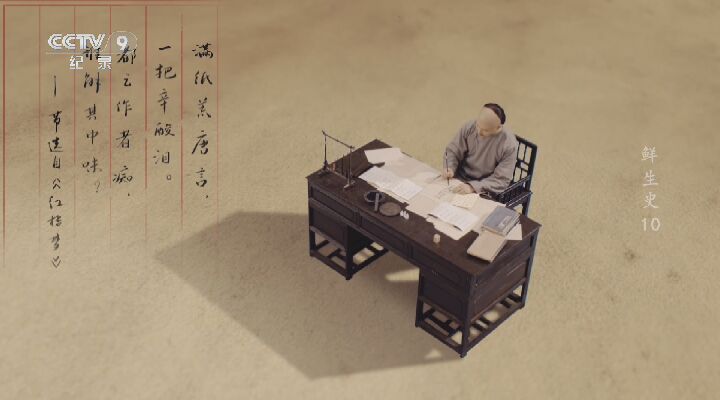 CCTV 9
纪录
满纸荒唐言，
一把辛酸泪。
都云作者痴，
谁解其中味？
——节选自《红楼梦》
鲜生史
10